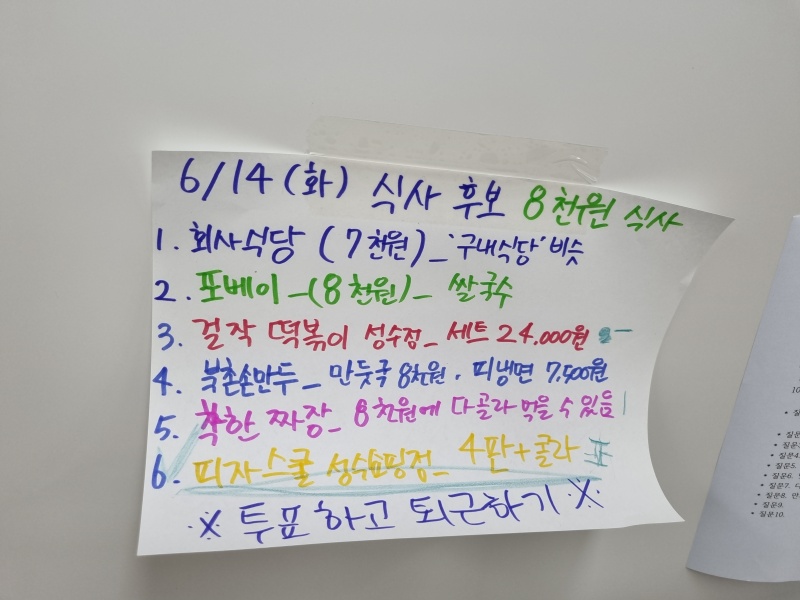 6/14 (화) 식사 후보 8천원 식사
1. 회사식당 (7천원)_'구내식당' 비슷
2. 포베이_(8천원)_ 쌀국수
3. 걸작 떡볶이 성수점_ 세트 24,000원
4. 북촌손만두_ 만둣국 8천원. 피냉면 7,500원
5. 착한 짜장_ 8천원에 다골라 먹을 수 있음
6. 피자스쿨 성수쇼핑점_ 4판+콜라
※ 투표하고 퇴근하기 ※
10
• 질
• 질문
• 질문3
• 질문4.
• 질문5.
• 질문6.
• 질문7.
• 질문8.
• 질문9.
• 질문10.